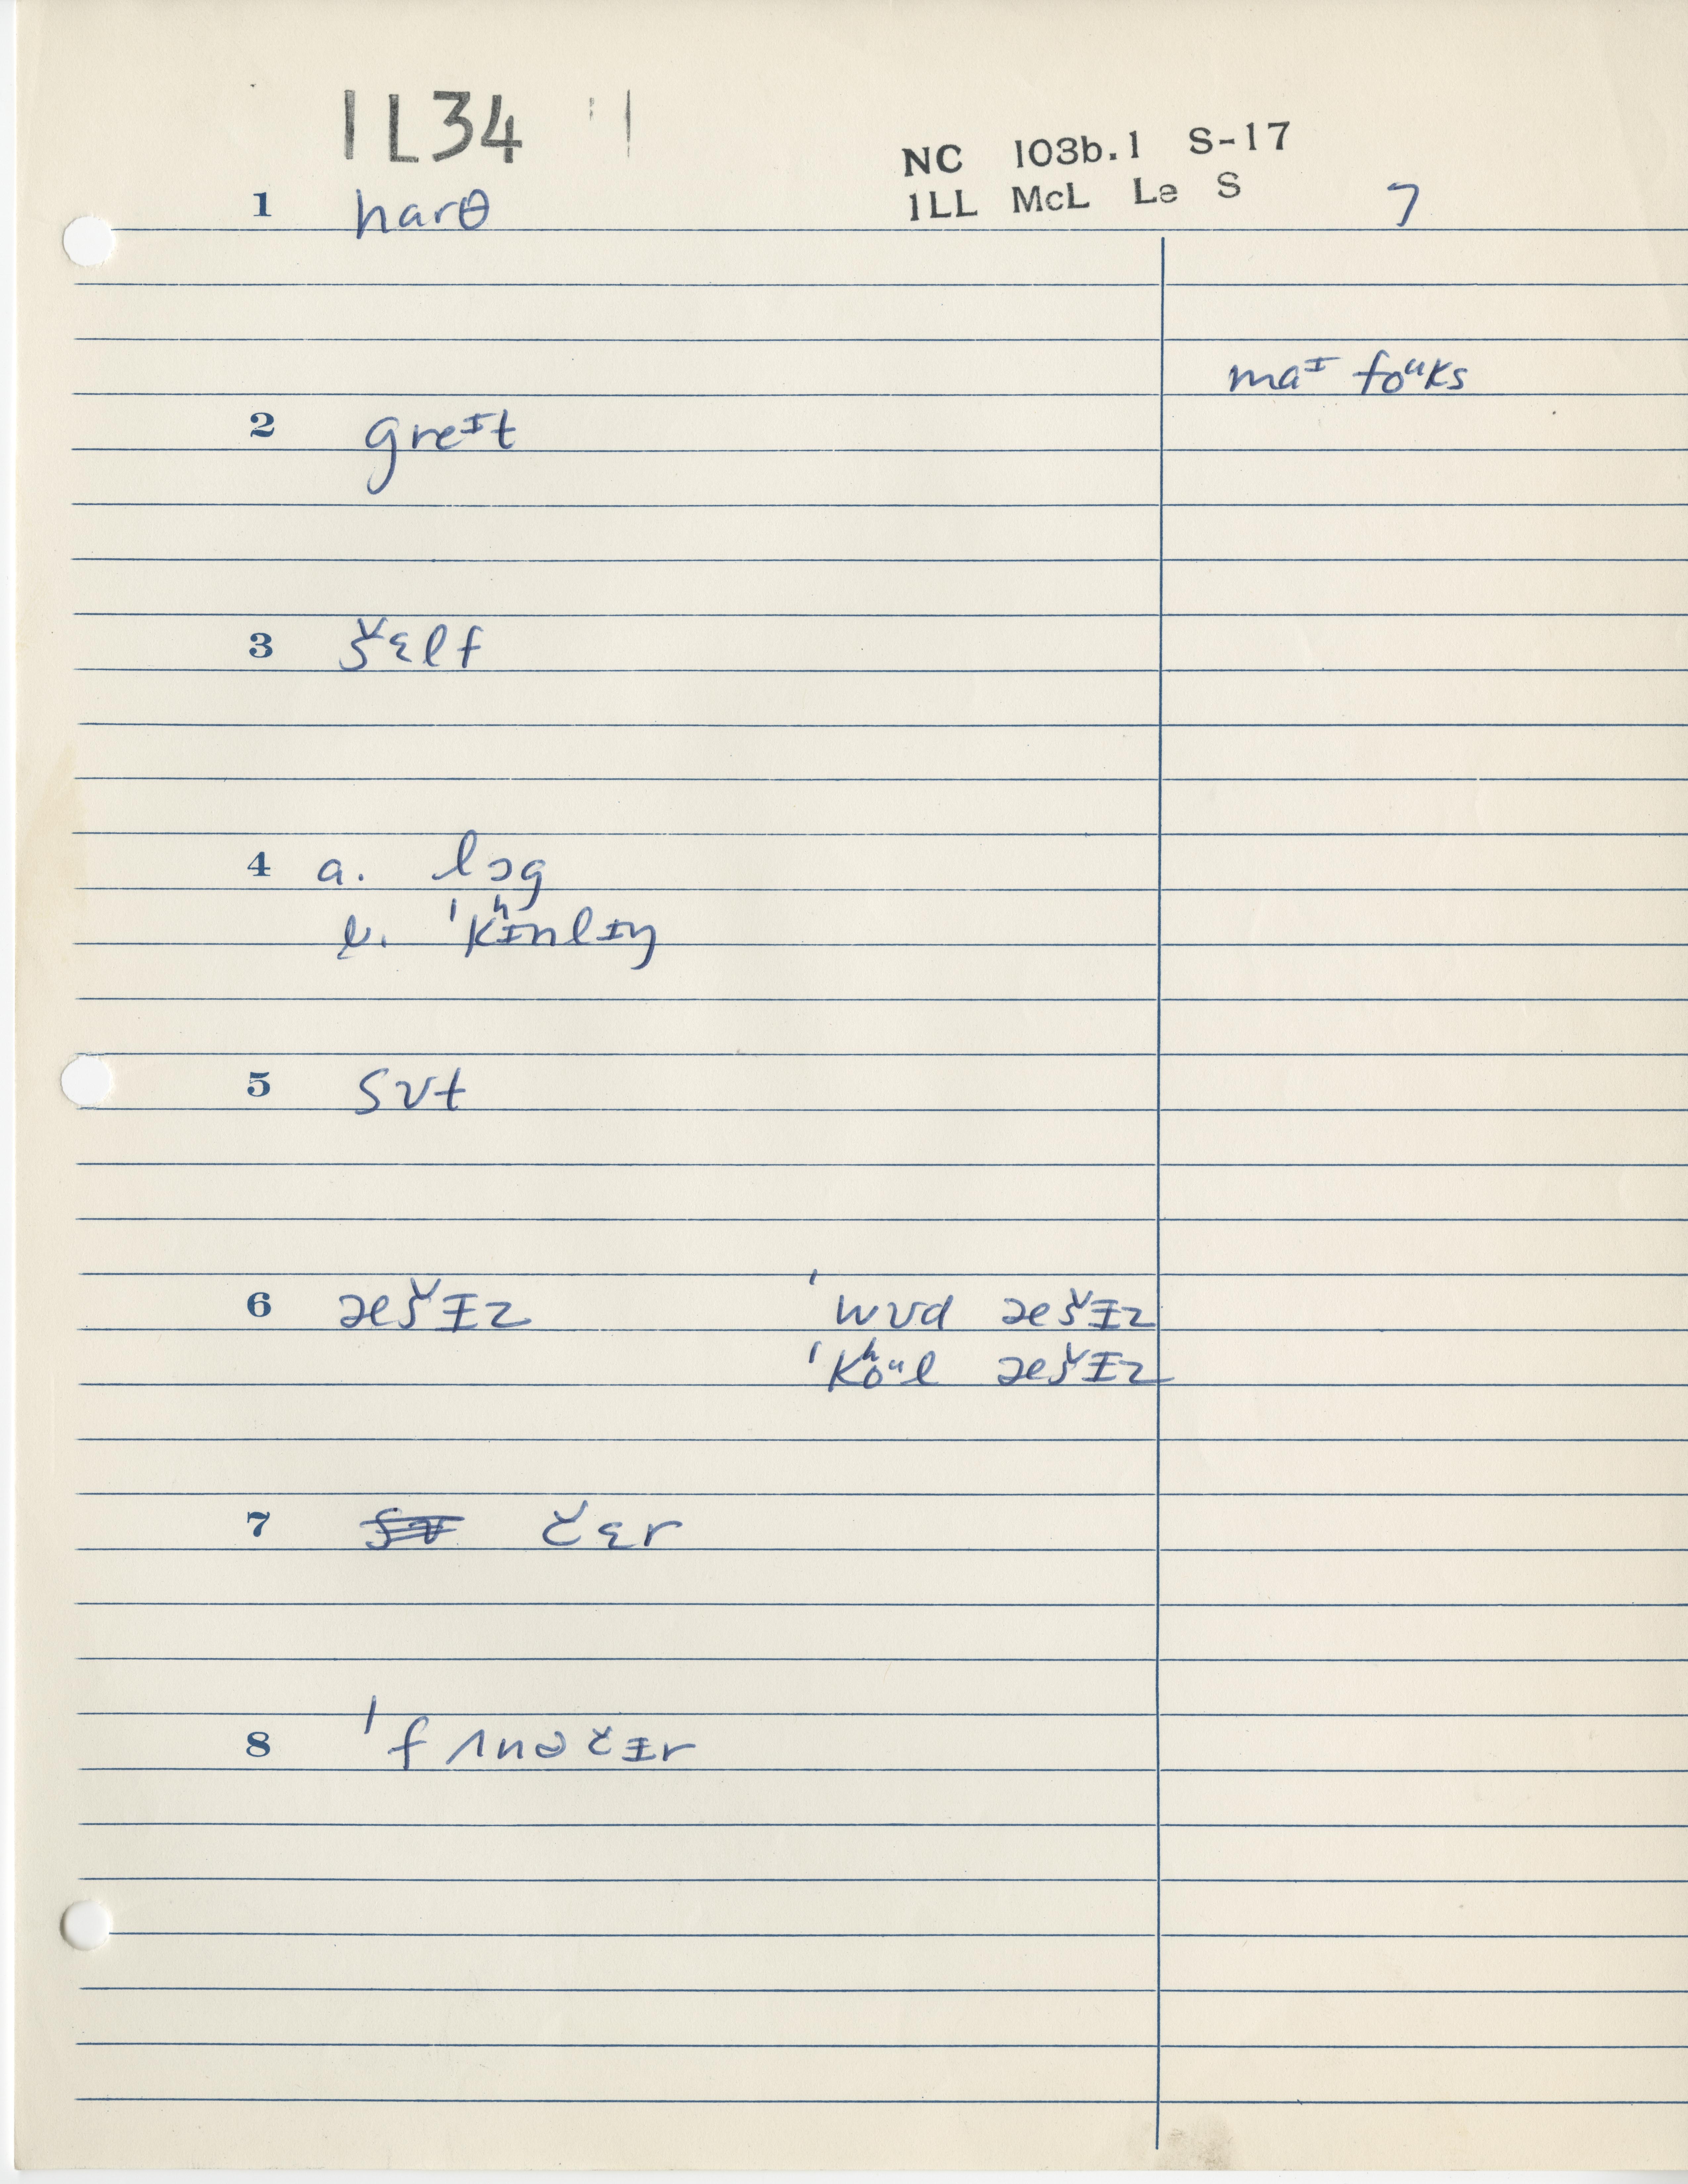 1L34 11
NC 103b.1 S-17
1LL McL Le S
7
1 harθ
maᴵ foᵘks
2 greᴵt
3 š̌ɛlf
4 a. lɔg
b. ˈkʰɪnlɪŋ
5 sʊt
6 æšɪz ˈwʊd æšɪz
ˈkʰoᵘl æšɪz
7 čɛr
8 ˈfʌnəčɪr